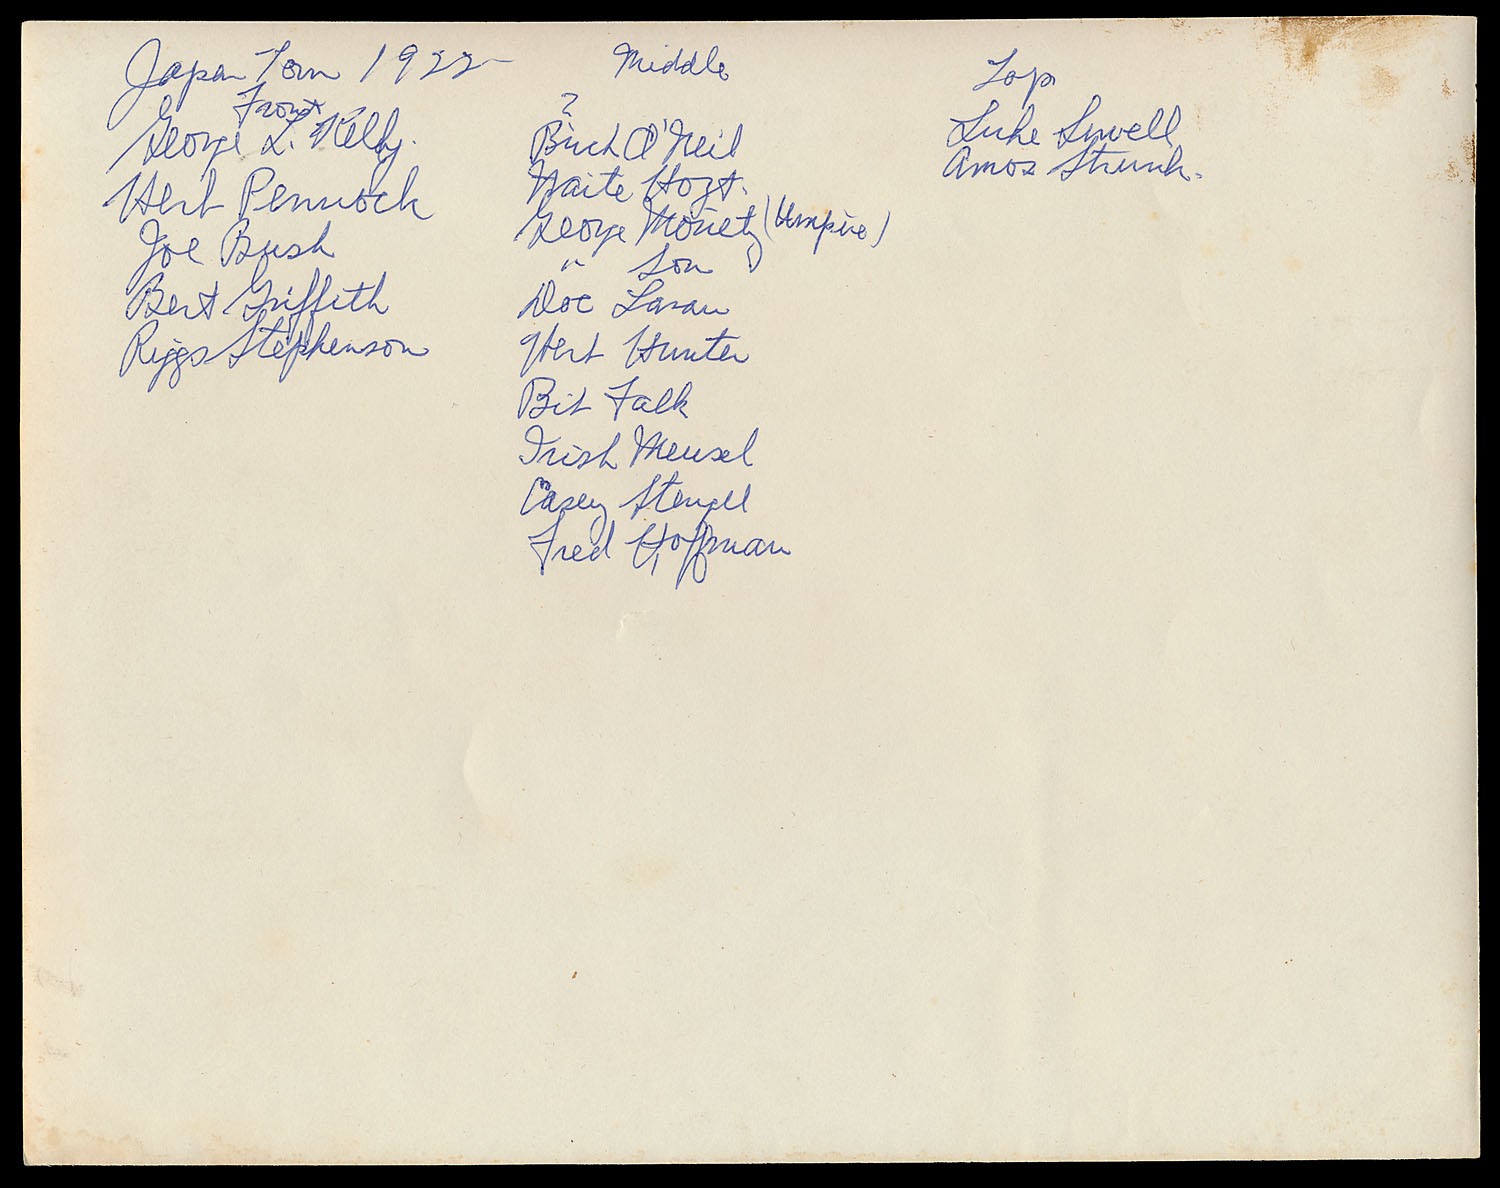 Japan Tour 1922
Front
George L. Kelly.
Herb Pennock
Joe Bush
Bert Griffith
Riggs Stephenson
Middle
?
Buch O'Neil
Waite Hoyt.
George Moriety (Umpire)
" Son
Doc Lavan
Herb Hunter
Bib Falk
Irish Meusel
Casey Stengel
Fred Hoffman
Top
Luke Sewell
Amos Strunk.